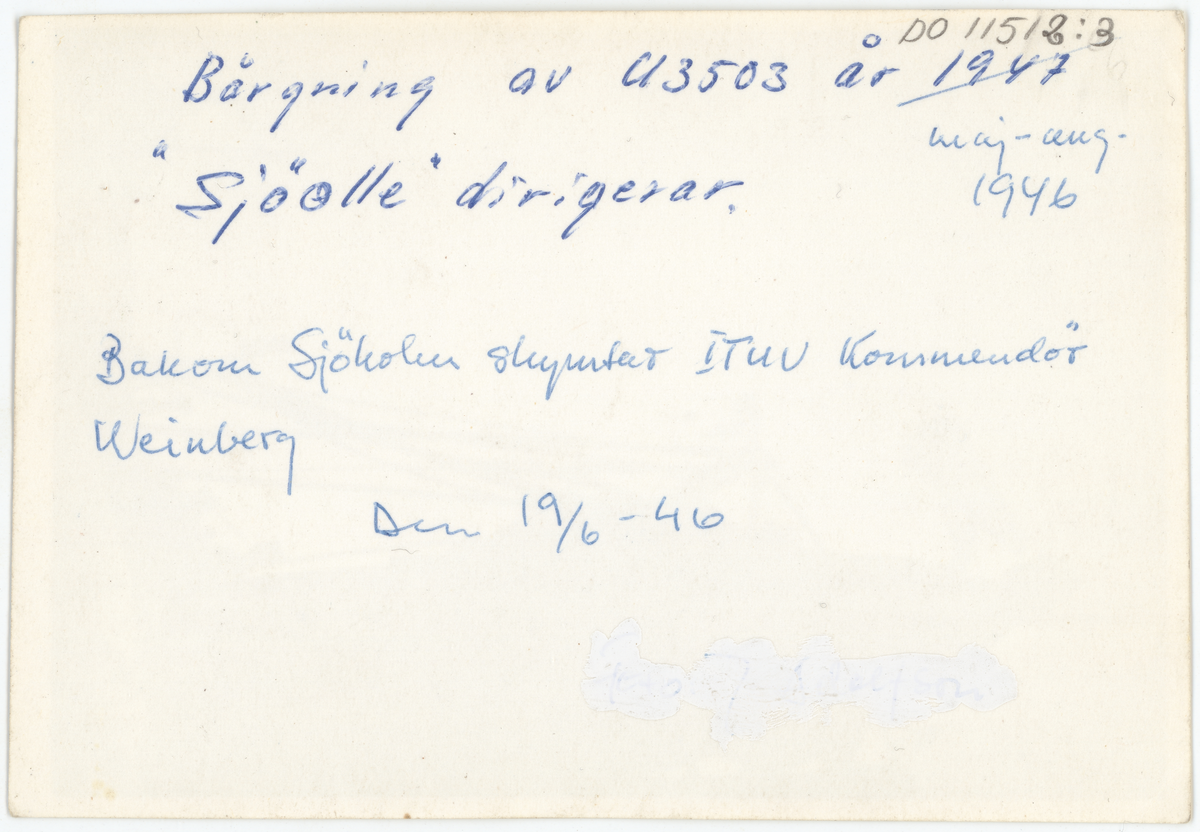 DO 11512:3
Bärgning av U3503 år 1947
maj-aug.
1946
"Sjöolle" dirigerar.
Bakom Sjöholm skymtar ITUV Kommendör
Weinberg
Den 19/6 - 46